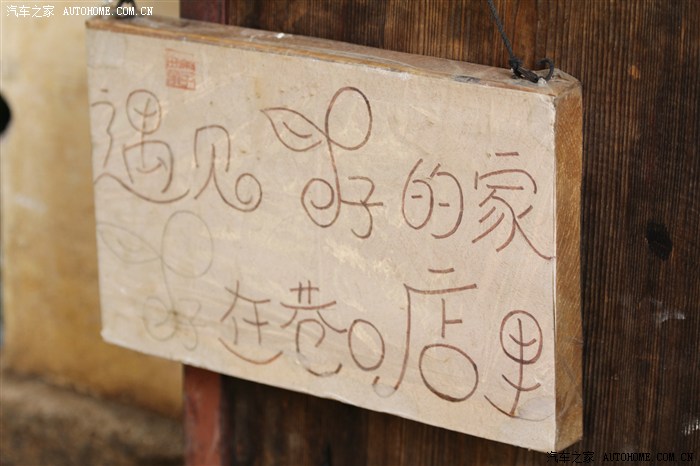 汽车之家 AUTOHOME.COM.CN
遇见好的家
在巷口店里
汽车之家 AUTOHOME.COM.CN